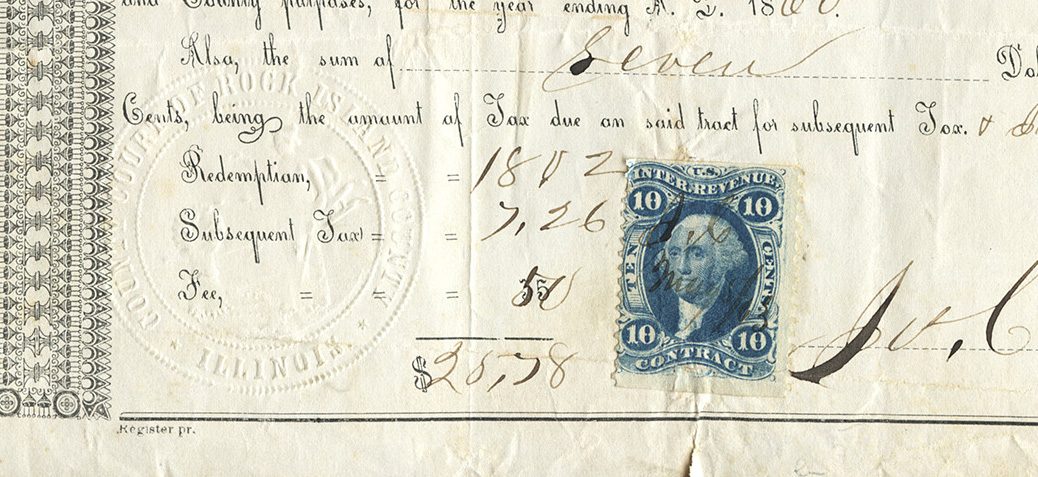 and County purposes, for the year ending A. D. 1860.
Also, the sum of Seven Dol
Cents, being the amount of Tax due on said tract for subsequent Tax. &
Redemption, = = 1802
Subsequent Tax = = 7,26
Fee, = = = 50
$25,78
Register pr.
COURT OF ROCK ISLAND COUNTY
ILLINOIS
U.S.
INTER. REVENUE
10 10
TEN CENTS
10 10
CONTRACT